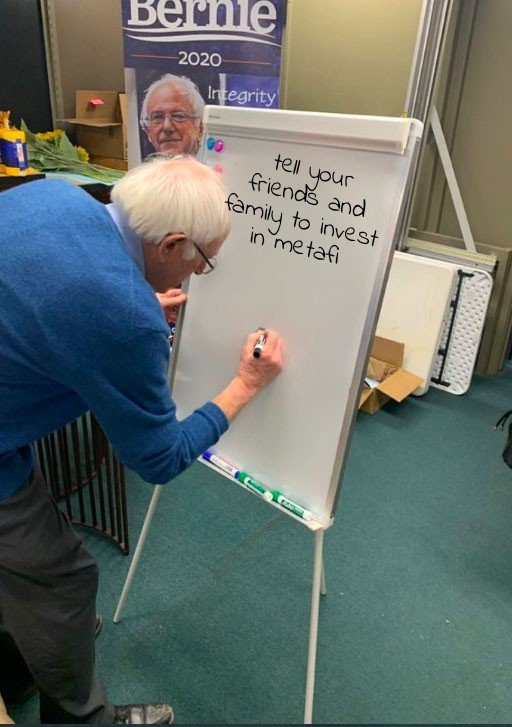 Bernie
2020
Integrity
tell your
friends and
family to invest
in metafi